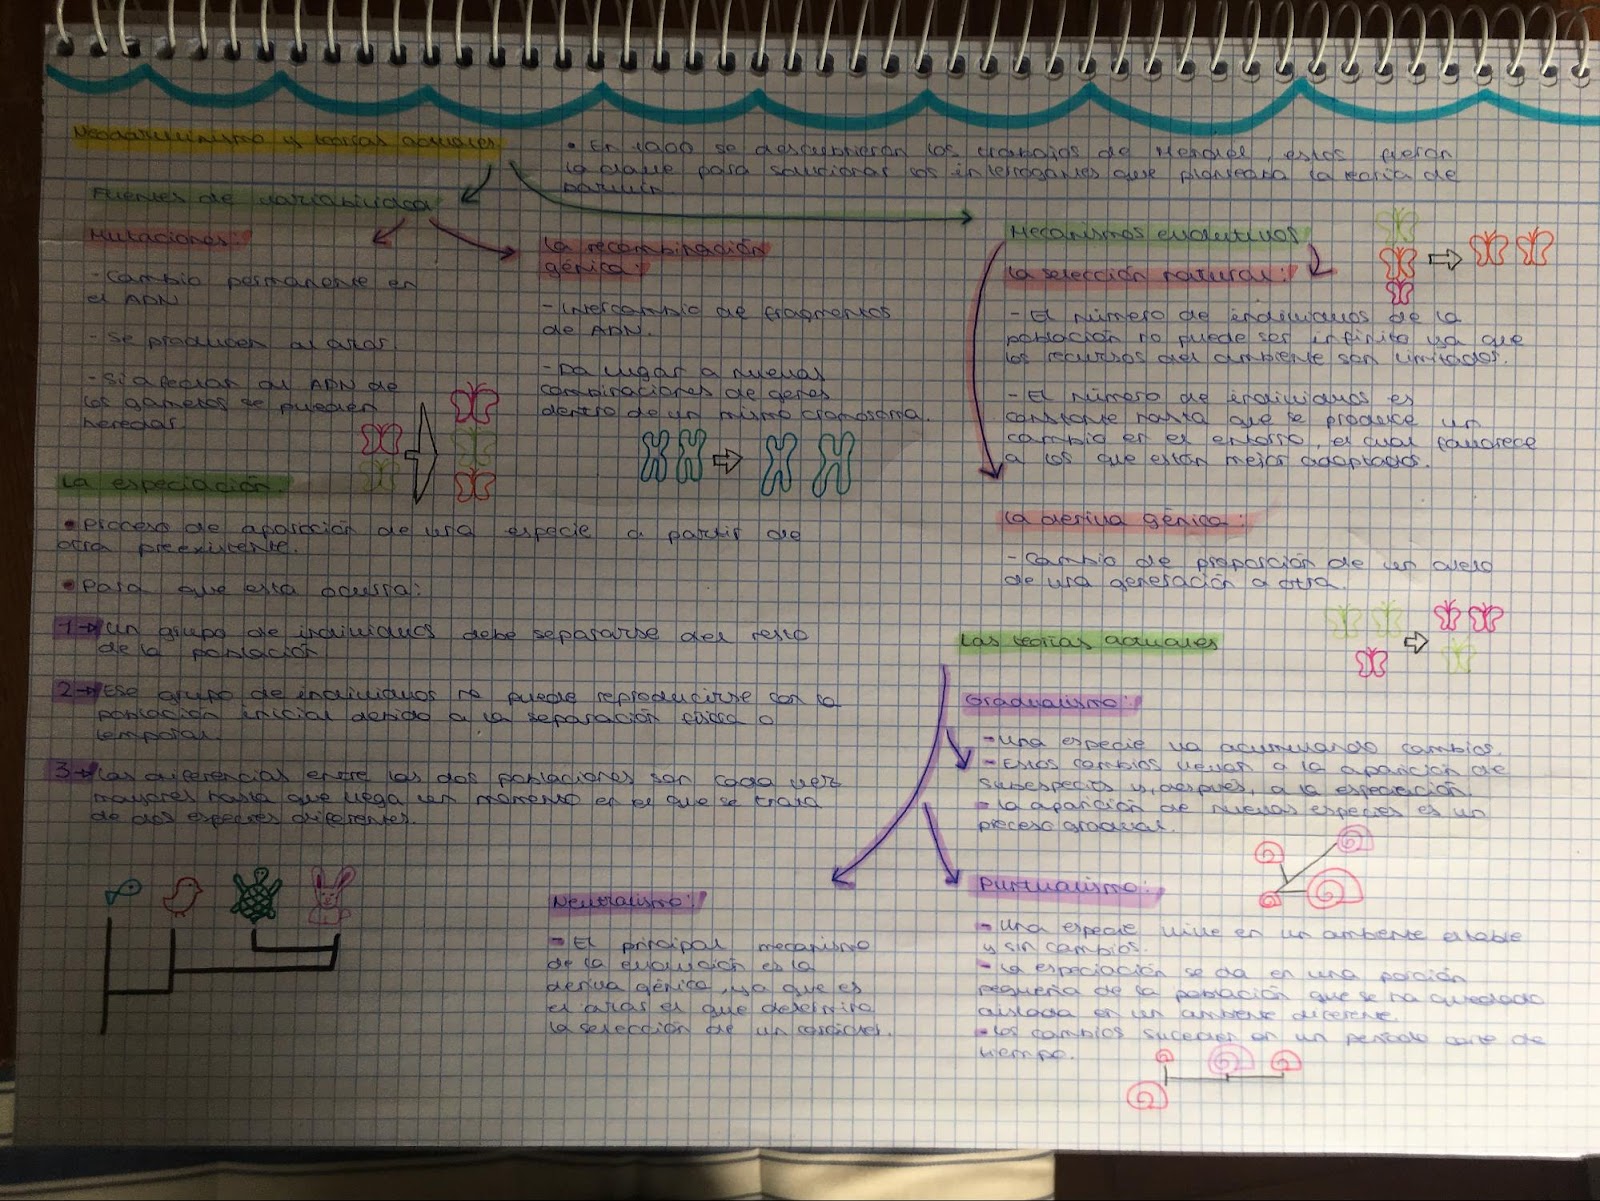 Neodarwinismo y teorías actuales
• En 1900 se descubrieron los trabajos de Mendel, estos fueron
la clave para solucionar los interrogantes que planteaba la teoría de
Darwin.
Fuentes de variabilidad
Mutaciones:
- Cambio permanente en
el ADN
- Se producen al azar
- Si afectan al ADN de
los gametos se pueden
heredar
La recombinación
génica:
- Intercambio de fragmentos
de ADN.
- Da lugar a nuevas
combinaciones de genes
dentro de un mismo cromosoma.
La especiación.
• Proceso de aparición de una especie a partir de
otra preexistente.
• Para que esta ocurra:
1→ Un grupo de individuos debe separarse del resto
de la población
2→ Ese grupo de individuos no puede reproducirse con la
población inicial debido a la separación física o
temporal.
3→ Las diferencias entre las dos poblaciones son cada vez
mayores hasta que llega un momento en el que se trata
de dos especies diferentes.
Mecanismos evolutivos
La selección natural:
- El número de individuos de la
población no puede ser infinito ya que
los recursos del ambiente son limitados.
- El número de individuos es
constante hasta que se produce un
cambio en el entorno, el cual favorece
a los que están mejor adaptados.
La deriva génica:
- Cambio de proporción de un alelo
de una generación a otra.
Las teorías actuales
Gradualismo:
- Una especie va acumulando cambios.
- Estos cambios llevan a la aparición de
subespecies y, después, a la especiación.
- La aparición de nuevas especies es un
proceso gradual.
Neutralismo:
- El principal mecanismo
de la evolución es la
deriva génica, ya que es
el azar el que determina
la selección de un carácter.
Puntualismo:
- Una especie vive en un ambiente estable
y sin cambios.
- La especiación se da en una porción
pequeña de la población que se ha quedado
aislada en un ambiente diferente.
- Los cambios suceden en un periodo corto de
tiempo.